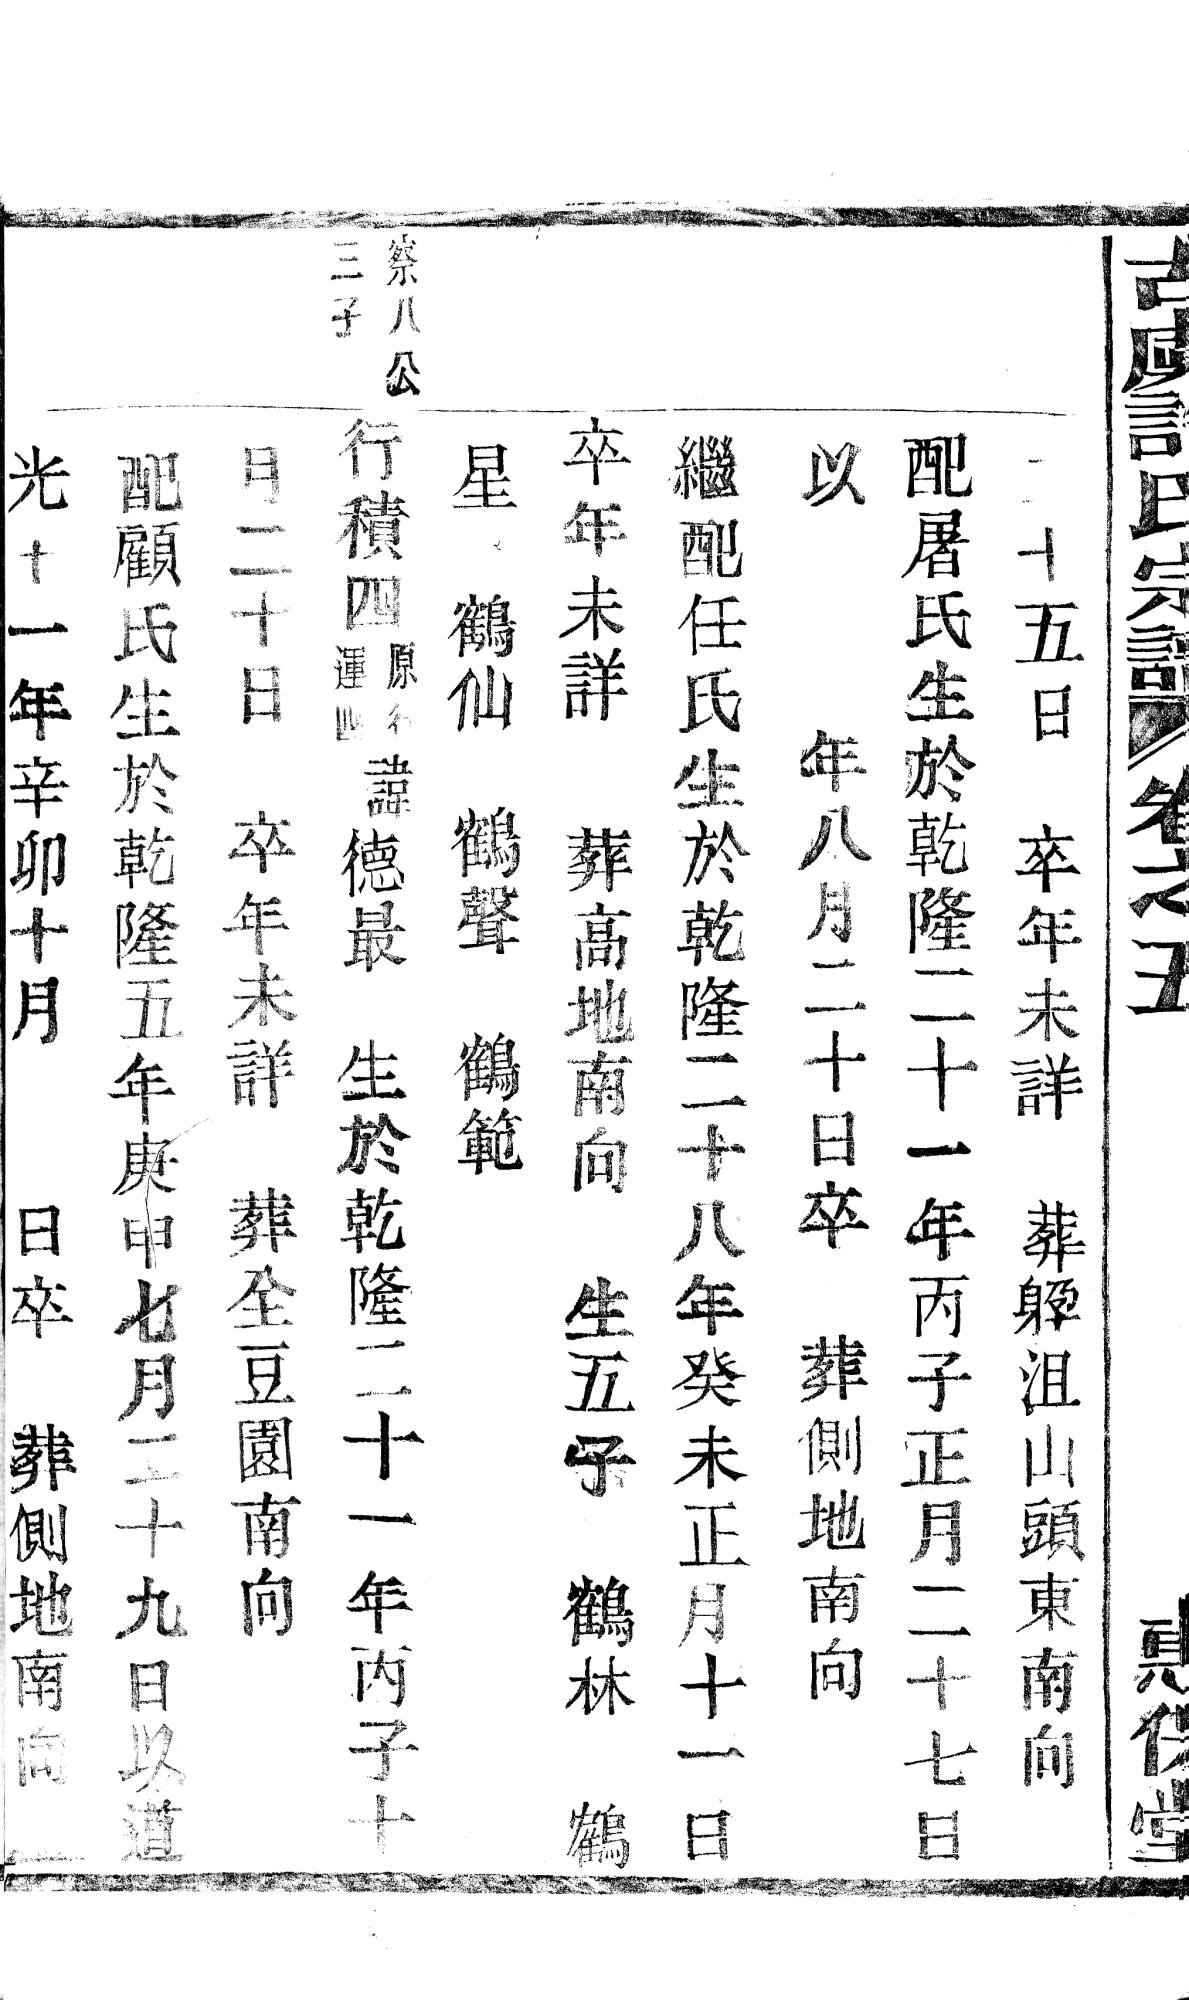 古虞許氏宗譜 卷之五 惠保堂
二十五日 卒年未詳 葬
沮山頭東南向
配屠氏生於乾隆二十一年丙子正月二十七日
以 年八月二十日卒 葬側地南向
繼配任氏生於乾隆二十八年癸未正月十一日
卒年未詳 葬高地南向 生五子 鶴林 鶴
星 鶴仙 鶴聲 鶴範
察八公
三子
行積四 原行 運四 諱德最 生於乾隆二十一年丙子十
月二十日 卒年未詳 葬全豆園南向
配顧氏生於乾隆五年庚申七月二十九日以道
光十一年辛卯十月 日卒 葬側地南向